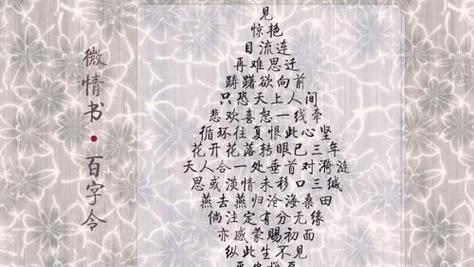 微情书·百字令
见
惊艳
目流连
再难思迁
踌躇欲向前
只恐天上人间
悲欢喜怒一线牵
循环往复恨此心坚
花开花落转眼已三年
天人合一处垂首对漪涟
思或淡情未移口三缄
燕去燕归沧海桑田
倘注定有分无缘
亦感蒙赐初面
纵此生不见